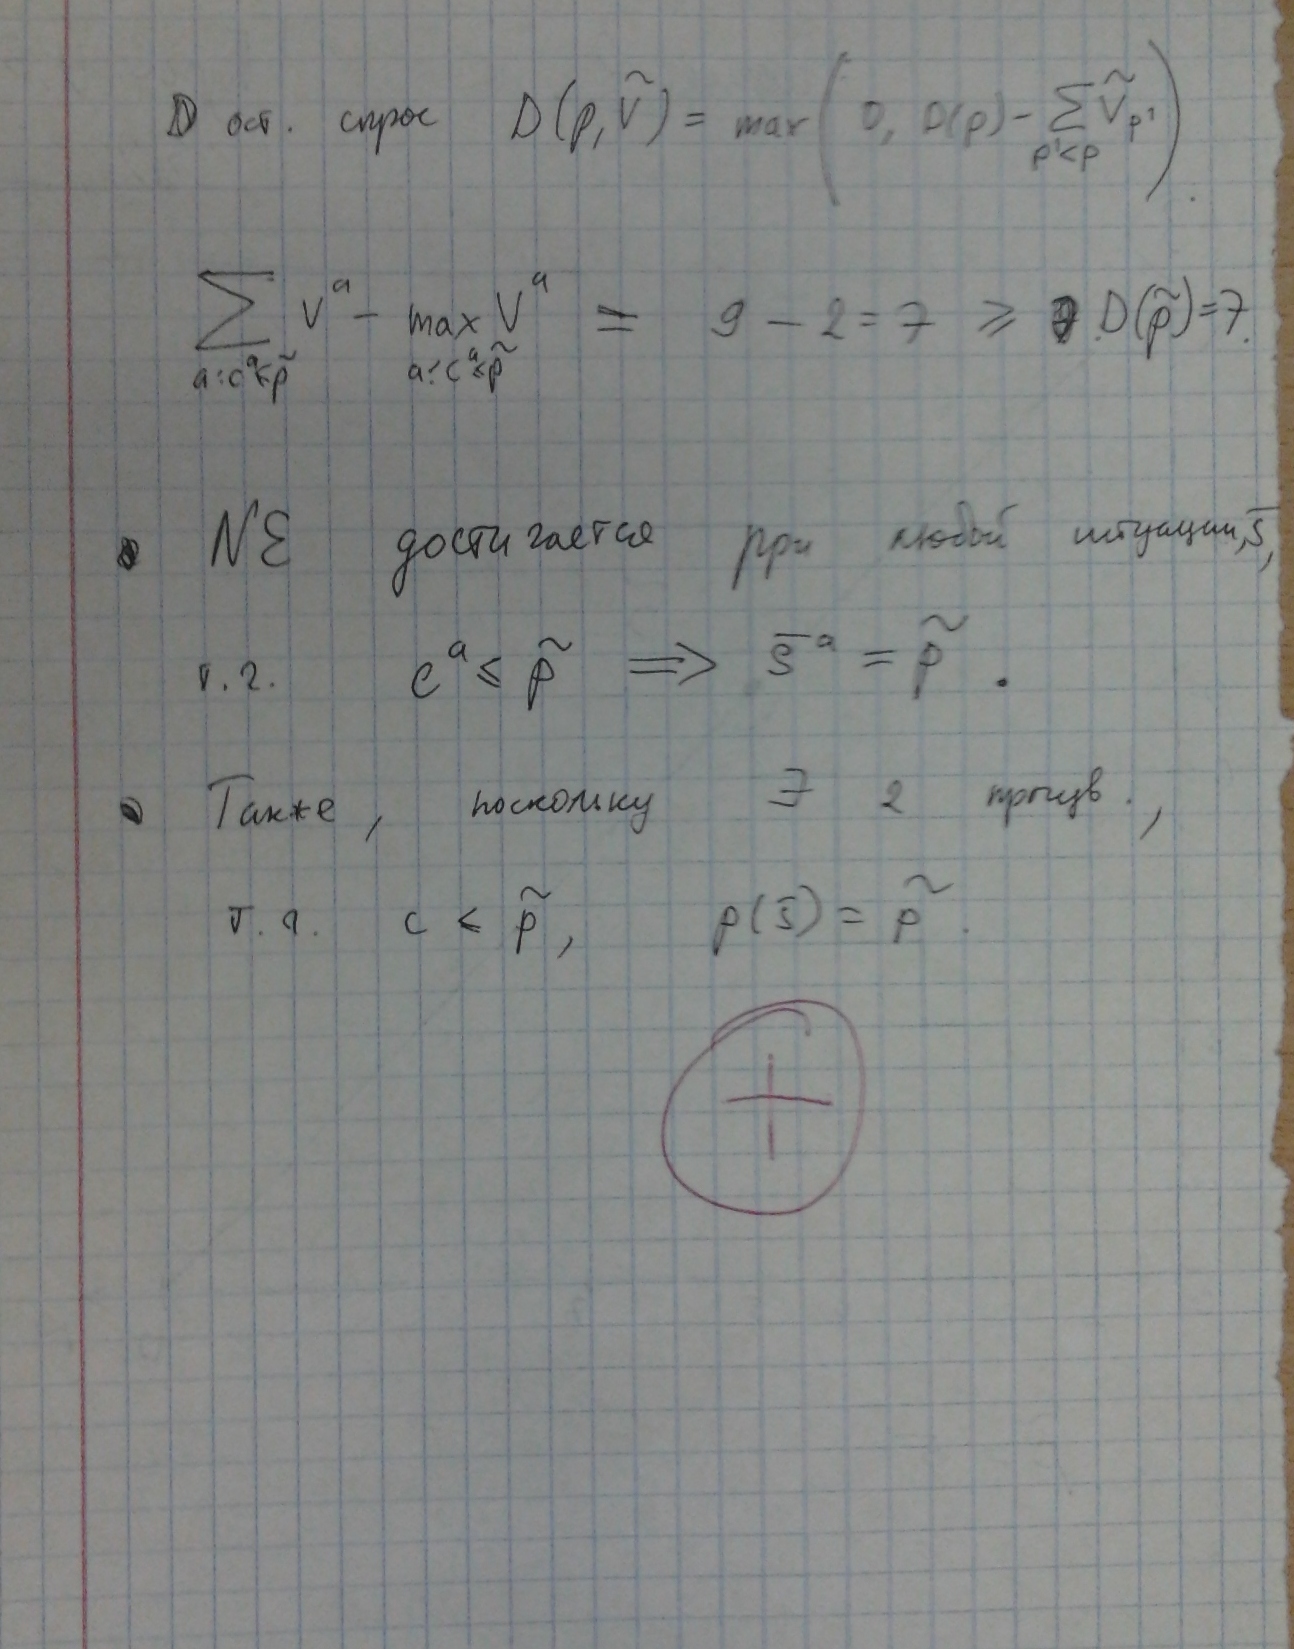 ост. спрос D(p, Ṽ) = max(0, D(p) - ∑_{p'<p} Ṽ_{p'}).
∑_{a: c^a ≤ p̃} V^a - max_{a: c^a ≤ p̃} V^a = 9 - 2 = 7 ⩾ D(p̃) = 7.
• NE достигается при любой ситуации, s̄,
т.ч. c^a ⩽ p̃ ⟹ s̄^a = p̃.
• Также, поскольку ∃ 2 произв.,
т.ч. c < p̃, p(s̄) = p̃.
+